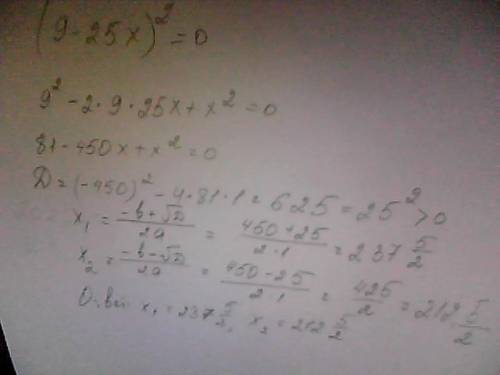 (9 - 25x)² = 0
9² - 2 · 9 · 25x + x² = 0
81 - 450x + x² = 0
D = (-450)² - 4 · 81 · 1 = 625 = 25² > 0
x₁ = (-b + √D)/2a = (450 + 25)/(2 · 1) = 237 5/2
x₂ = (-b - √D)/2a = (450 - 25)/(2 · 1) = 425/2 = 212 5/2
x₁ = 237 5/2, x₂ = 212 5/2